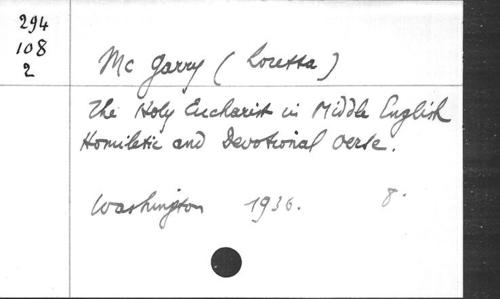 294
108
2
Mc Garry (Loretta)
The Holy Eucharist in Middle English
Homiletic and Devotional Verse.
Washington 1936. 8.